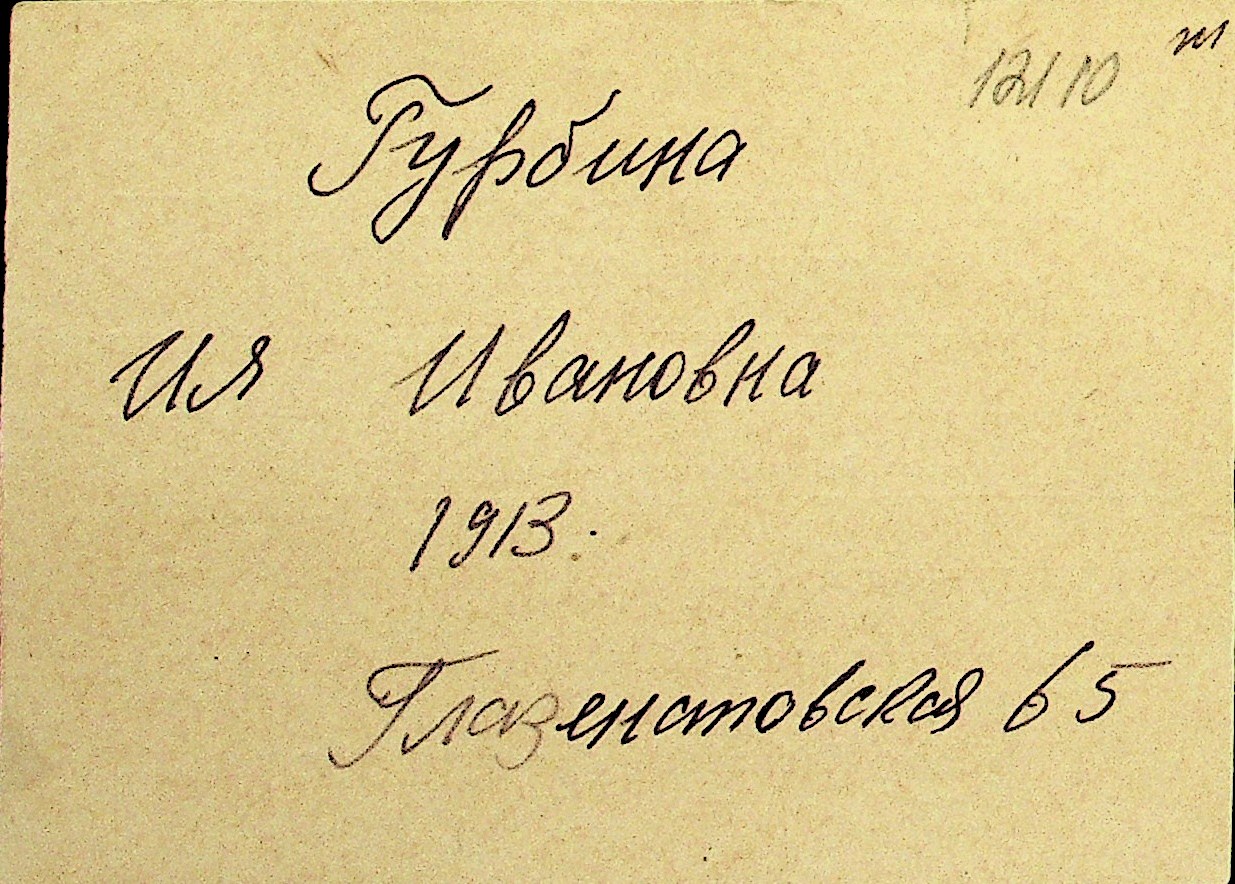 12110
Гурбина
Ия Ивановна
1913.
Глазенатовская 65